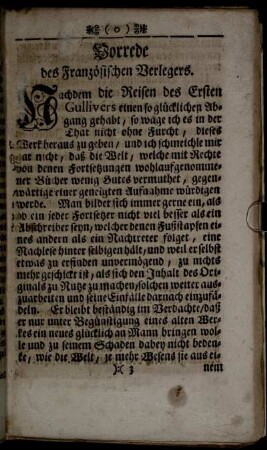 (o)
Vorrede
des Französischen Verlegers.
Nachdem die Reisen des Ersten
Gullivers einen so glücklichen Ab-
gang gehabt, so wage ich es in der
That nicht ohne Furcht, dieses
Werk heraus zu geben, und ich schmeichle mir
gar nicht, daß die Welt, welche mit Rechte
von denen Fortsetzungen wohlaufgenomme-
ner Bücher wenig Gutes vermuthet, gegen-
wärtige einer geneigten Aufnahme würdigen
werde. Man bildet sich immer gerne ein, als
ob ein jeder Fortsetzer nicht viel besser als ein
Abschreiber seyn, welcher denen Fußstapfen ei-
nes andern als ein Nachtreter folget, eine
Nachlese hinter selbigen hält, und weil er selbst
etwas zu erfinden unvermögend, zu nichts
mehr geschickt ist, als sich den Inhalt des Ori-
ginals zu Nutze zu machen, solchen weiter aus-
zuarbeiten und seine Einfälle darnach einzufä-
deln. Er bleibt beständig im Verdachte, daß
er nur unter Begünstigung eines alten Wer-
kes ein neues glücklich an Mann bringen wol-
le und zu seinem Schaden dabey nicht beden-
ke, wie die Welt, je mehr Wesens sie aus ei-
)( 3 nem